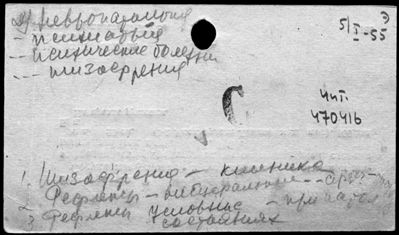 2) Невропатология
- психиатрия
- психические болезни
--- шизофрения
5/I-55
Чит.
470416
1. Шизофрения - клиника
2. Рефлексы - висцеральные
3. Рефлексы условные - при
состояниях